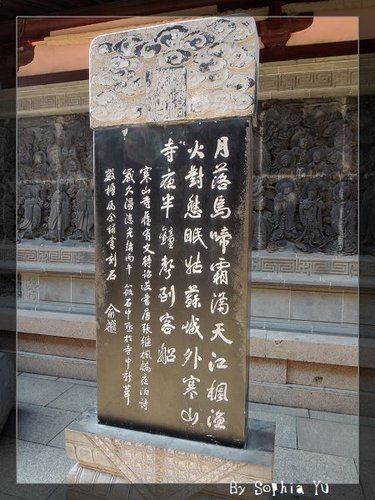 月落烏啼霜滿天江楓漁
火對愁眠姑蘇城外寒山
寺夜半鐘聲到客船
寒山寺舊有文待詔所書唐張繼楓橋夜泊詩
歲久漫漶光緒丙午筱石中丞於寺中新葺
數楹屬余補書刻石 俞樾
By Sophia Yu